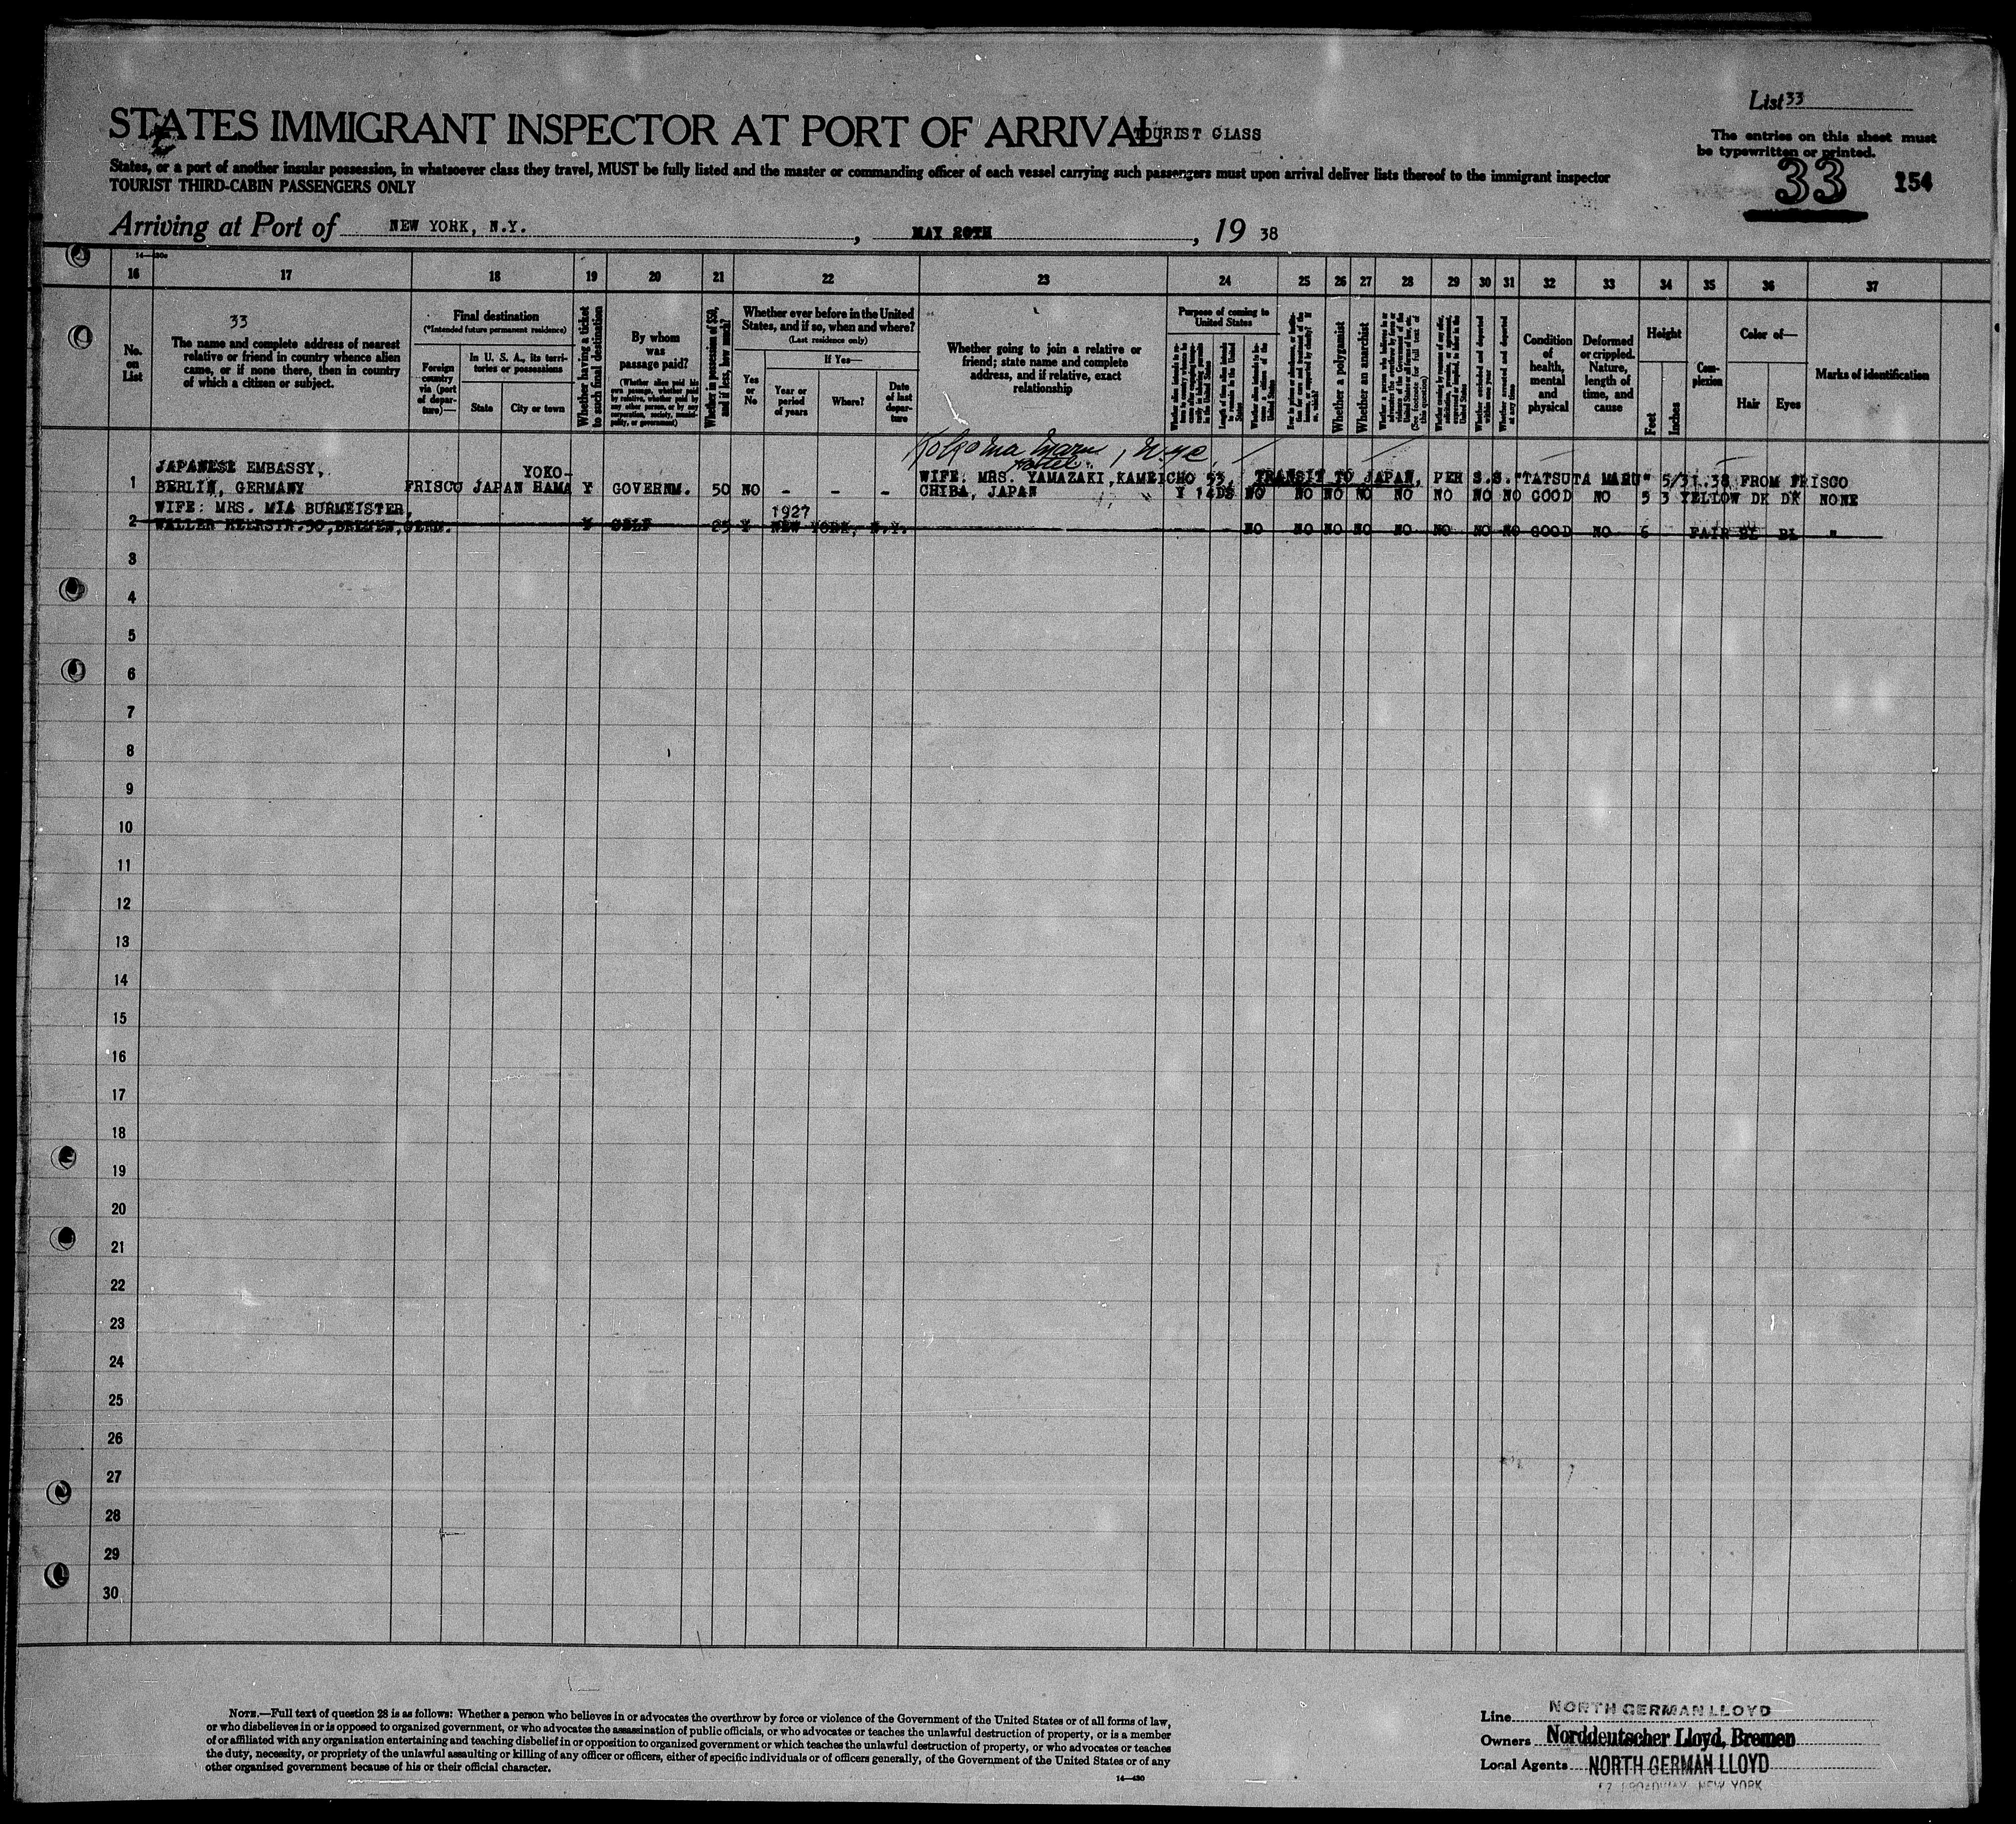 List 33
STATES IMMIGRANT INSPECTOR AT PORT OF ARRIVAL TOURIST CLASS
The entries on this sheet must
be typewritten or printed.
States, or a port of another insular possession, in whatsoever class they travel, MUST be fully listed and the master or commanding officer of each vessel carrying such passengers must upon arrival deliver lists thereof to the immigrant inspector
TOURIST THIRD-CABIN PASSENGERS ONLY
33 154
Arriving at Port of NEW YORK, N.Y., MAY 20TH, 19 38
16 17 18 19 20 21 22 23 24 25 26 27 28 29 30 31 32 33 34 35 36 37
No. on List
33
The name and complete address of nearest
relative or friend in country whence alien
came, or if none there, then in country
of which a citizen or subject.
Final destination
(*Intended future permanent residence)
Foreign country via (port of departure)—
In U. S. A., its territories or possessions
State
City or town
Whether having a ticket to such final destination
By whom was passage paid?
(Whether alien paid his own passage, whether paid by relative, whether paid by any other person, or by any corporation, society, municipality, or government)
Whether in possession of $50, and if less, how much?
Whether ever before in the United
States, and if so, when and where?
(Last residence only)
Yes or No
If Yes—
Year or period of years
Where?
Date of last departure
Whether going to join a relative or
friend; state name and complete
address, and if relative, exact
relationship
Purpose of coming to United States
Whether a polygamist
Whether an anarchist
Condition of health, mental and physical
Deformed or crippled. Nature, length of time, and cause
Height
Feet
Inches
Complexion
Color of—
Hair
Eyes
Marks of identification
N.Y.C.
Hotel
1 JAPANESE EMBASSY, YOKO- WIFE: MRS. YAMAZAKI, KAMEICHO 53, TRANSIT TO JAPAN, PER S.S. "TATSUTA MARU" 5/31.38 FROM FRISCO
BERLIN, GERMANY FRISCO JAPAN HAMA Y GOVERNM. 50 NO - - - CHIBA, JAPAN Y 14DS NO NO NO NO NO NO NO NO GOOD NO 5 3 YELLOW DK DK NONE
WIFE: MRS. MIA BURMEISTER, 1927
2 WALLER HEERSTR.50, BREMEN, GERM. Y SELF 25 Y NEW YORK, N.Y. NO NO NO NO NO NO NO NO GOOD NO 6 FAIR BL BL "
3
4
5
6
7
8
9
10
11
12
13
14
15
16
17
18
19
20
21
22
23
24
25
26
27
28
29
30
NOTE.—Full text of question 28 is as follows: Whether a person who believes in or advocates the overthrow by force or violence of the Government of the United States or of all forms of law,
or who disbelieves in or is opposed to organized government, or who advocates the assassination of public officials, or who advocates or teaches the unlawful destruction of property, or is a member
of or affiliated with any organization entertaining and teaching disbelief in or opposition to organized government or which teaches the unlawful destruction of property, or who advocates or teaches
the duty, necessity, or propriety of the unlawful assaulting or killing of any officer or officers, either of specific individuals or of officers generally, of the Government of the United States or of any
other organized government because of his or their official character.
14—430
Line NORTH GERMAN LLOYD
Owners Norddeutscher Lloyd, Bremen
Local Agents NORTH GERMAN LLOYD
57 BROADWAY, NEW YORK